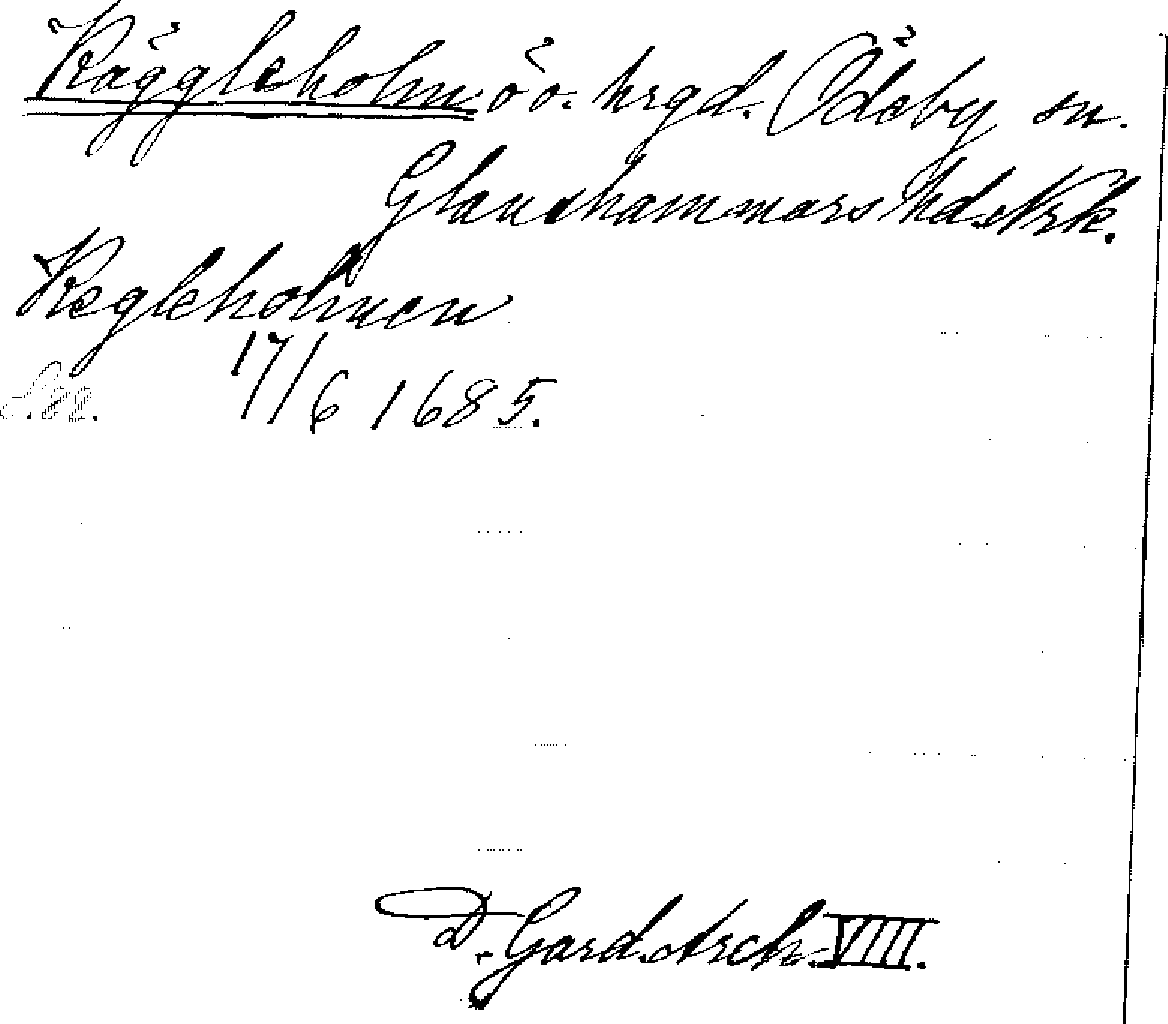 Käggleholm ö o. hrgd. Ödeby sn.
Glanshammars hd. Nrk.
Kegleholmen
17/6 1685.
D. Gard. Arch. VIII.